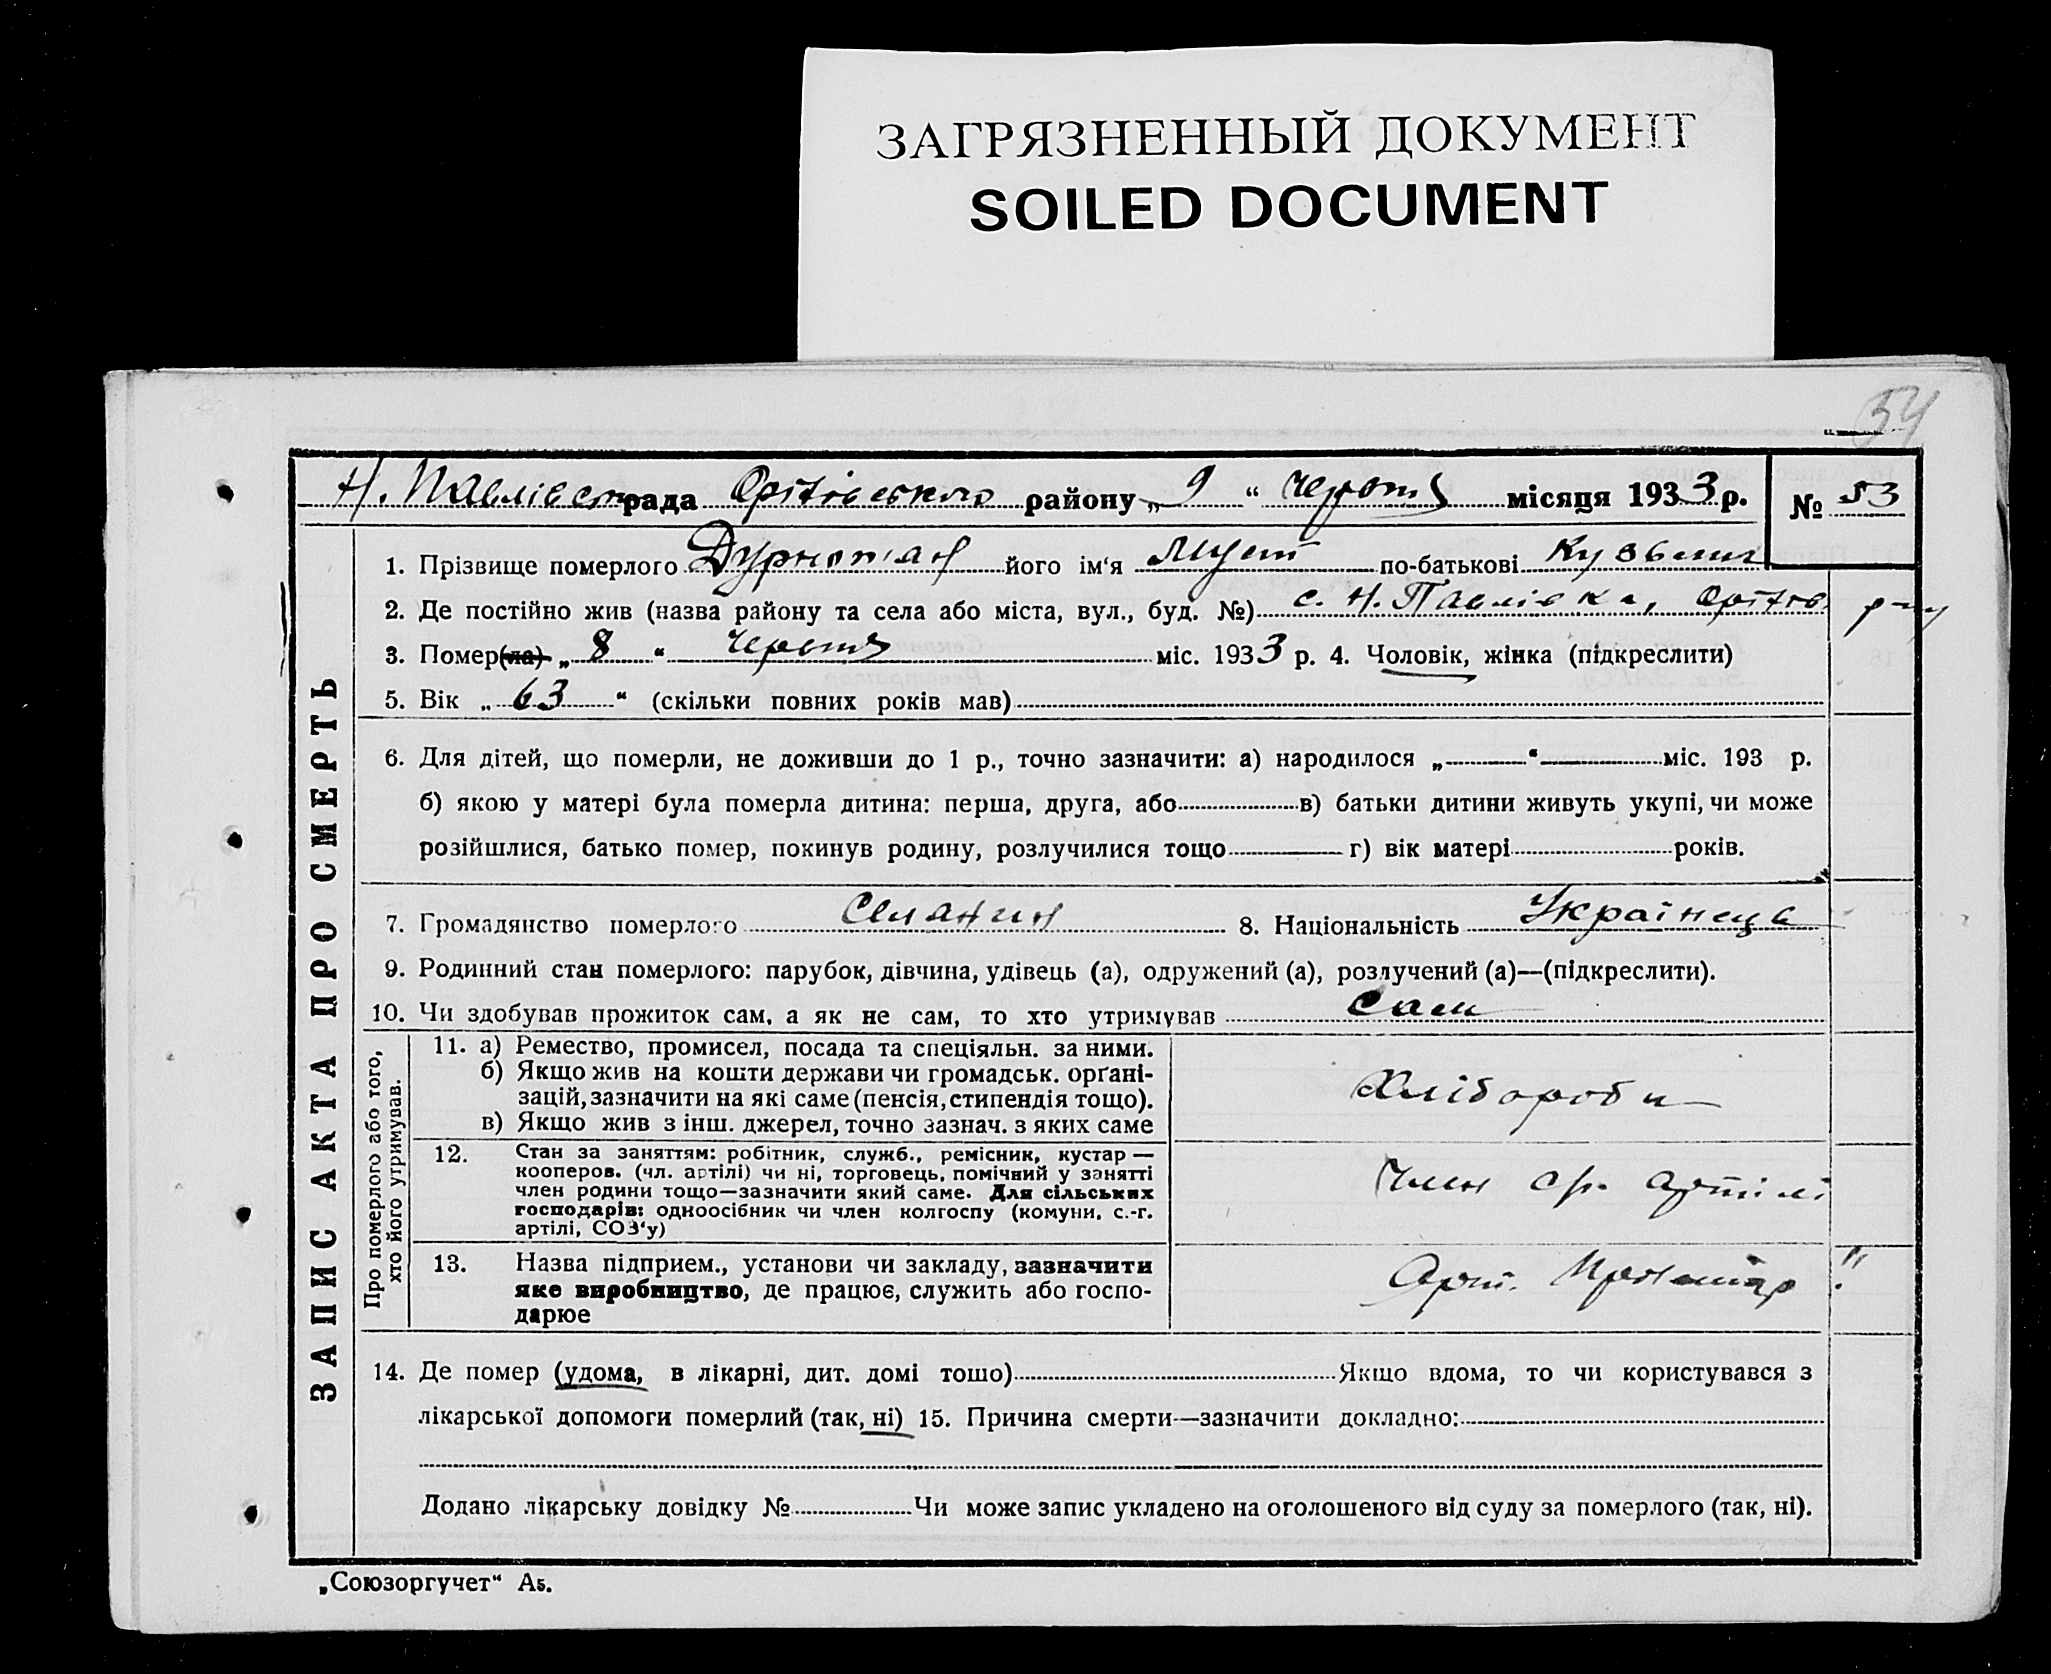 ЗАГРЯЗНЕННЫЙ ДОКУМЕНТ
SOILED DOCUMENT
54
Н. Павлівськ рада Оріхівського району „ 9 “ Червня місяця 1933 р. № 53
1. Прізвище померлого Дурнопян його ім‘я Мусій по-батькові Кузьмич
2. Де постійно жив (назва району та села або міста, вул., буд. №) с. Н. Павлівка, Оріхів. р-ну
3. Помер(ла) „ 8 “ Червня міс. 1933 р. 4. Чоловік, жінка (підкреслити)
5. Вік „ 63 “ (скільки повних років мав)
6. Для дітей, що померли, не доживши до 1 р., точно зазначити: а) народилося „ “ міс. 193 р.
б) якою у матері була померла дитина: перша, друга, або в) батьки дитини живуть укупі, чи може
розійшлися, батько помер, покинув родину, розлучилися тощо г) вік матері років.
7. Громадянство померлого Селянин 8. Національність Українець
9. Родинний стан померлого: парубок, дівчина, удівець (а), одружений (а), розлучений (а)—(підкреслити).
10. Чи здобував прожиток сам, а як не сам, то хто утримував Сам
ЗАПИС АКТА ПРО СМЕРТЬ
Про померлого або того,
хто його утримував.
11. а) Ремество, промисел, посада та спеціяльн. за ними.
б) Якщо жив на кошти держави чи громадськ. орґані-
зацій, зазначити на які саме (пенсія, стипендія тощо).
в) Якщо жив з інш. джерел, точно зазнач. з яких саме
Хлібороб
12. Стан за заняттям: робітник, служб., ремісник, кустар —
кооперов. (чл. артілі) чи ні, торговець, помічний у занятті
член родини тощо—зазначити який саме. Для сільських
господарів: одноосібник чи член колгоспу (комуни, с.-г.
артілі, СОЗ‘у)
Член с/г. артілі
13. Назва підприєм., установи чи закладу, зазначити
яке виробництво, де працює, служить або госпо-
дарює
Арт.
14. Де помер (удома, в лікарні, дит. домі тощо) Якщо вдома, то чи користувався з
лікарської допомоги померлий (так, ні) 15. Причина смерти—зазначити докладно:
Додано лікарську довідку № Чи може запис укладено на оголошеного від суду за померлого (так, ні).
„Союзоргучет“ А5.